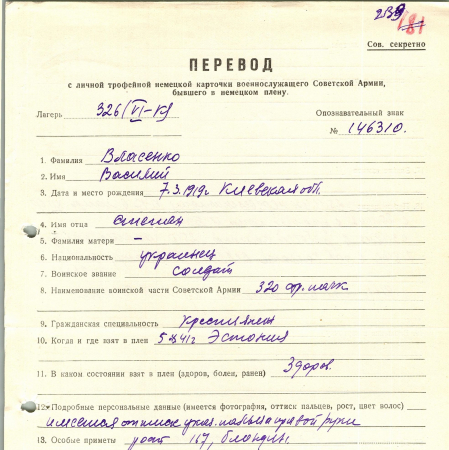 239
181
Сов. секретно
ПЕРЕВОД
с личной трофейной немецкой карточки военнослужащего Советской Армии,
бывшего в немецком плену.
Лагерь 326/VI-К
Опознавательный знак
№ 146310.
1. Фамилия Власенко
2. Имя Василий
3. Дата и место рождения 7.3.1919г Киевская обл.
4. Имя отца Степан
5. Фамилия матери –
6. Национальность украинец
7. Воинское звание солдат
8. Наименование воинской части Советской Армии 320
9. Гражданская специальность крестьянин
10. Когда и где взят в плен 5.8.41г Эстония
11. В каком состоянии взят в плен (здоров, болен, ранен) Здоров.
12. Подробные персональные данные (имеется фотография, оттиск пальцев, рост, цвет волос)
имеется оттиск указ. пальца правой руки
13. Особые приметы рост 167, блондин.